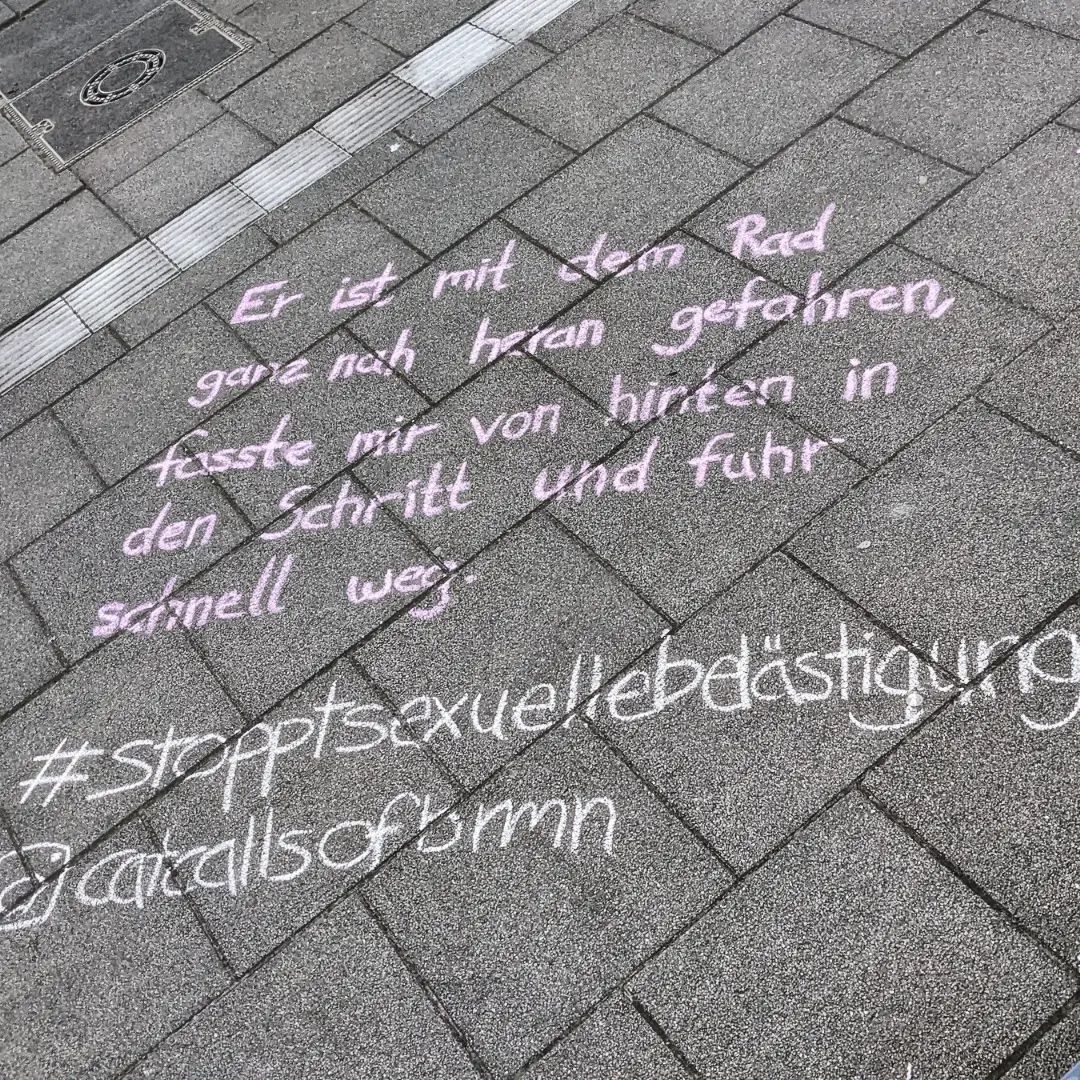 Er ist mit dem Rad
ganz nah heran gefahren,
fasste mir von hinten in
den Schritt und fuhr
schnell weg.
#stopptsexuellebelästigung
@catcallsofbrmn